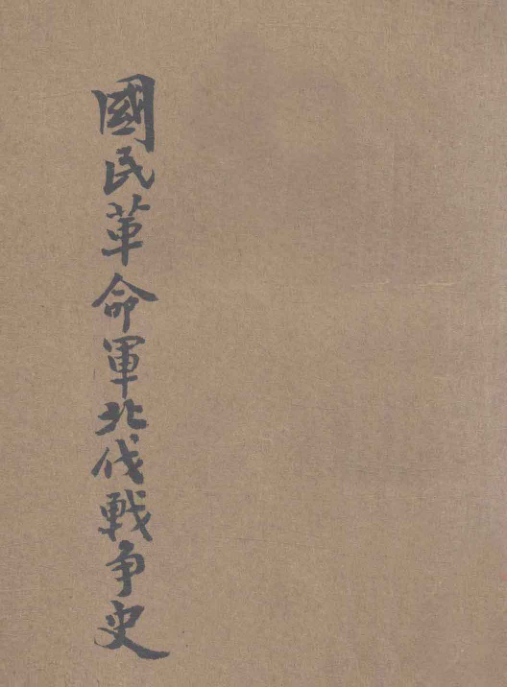 國民革命軍北伐戰争史